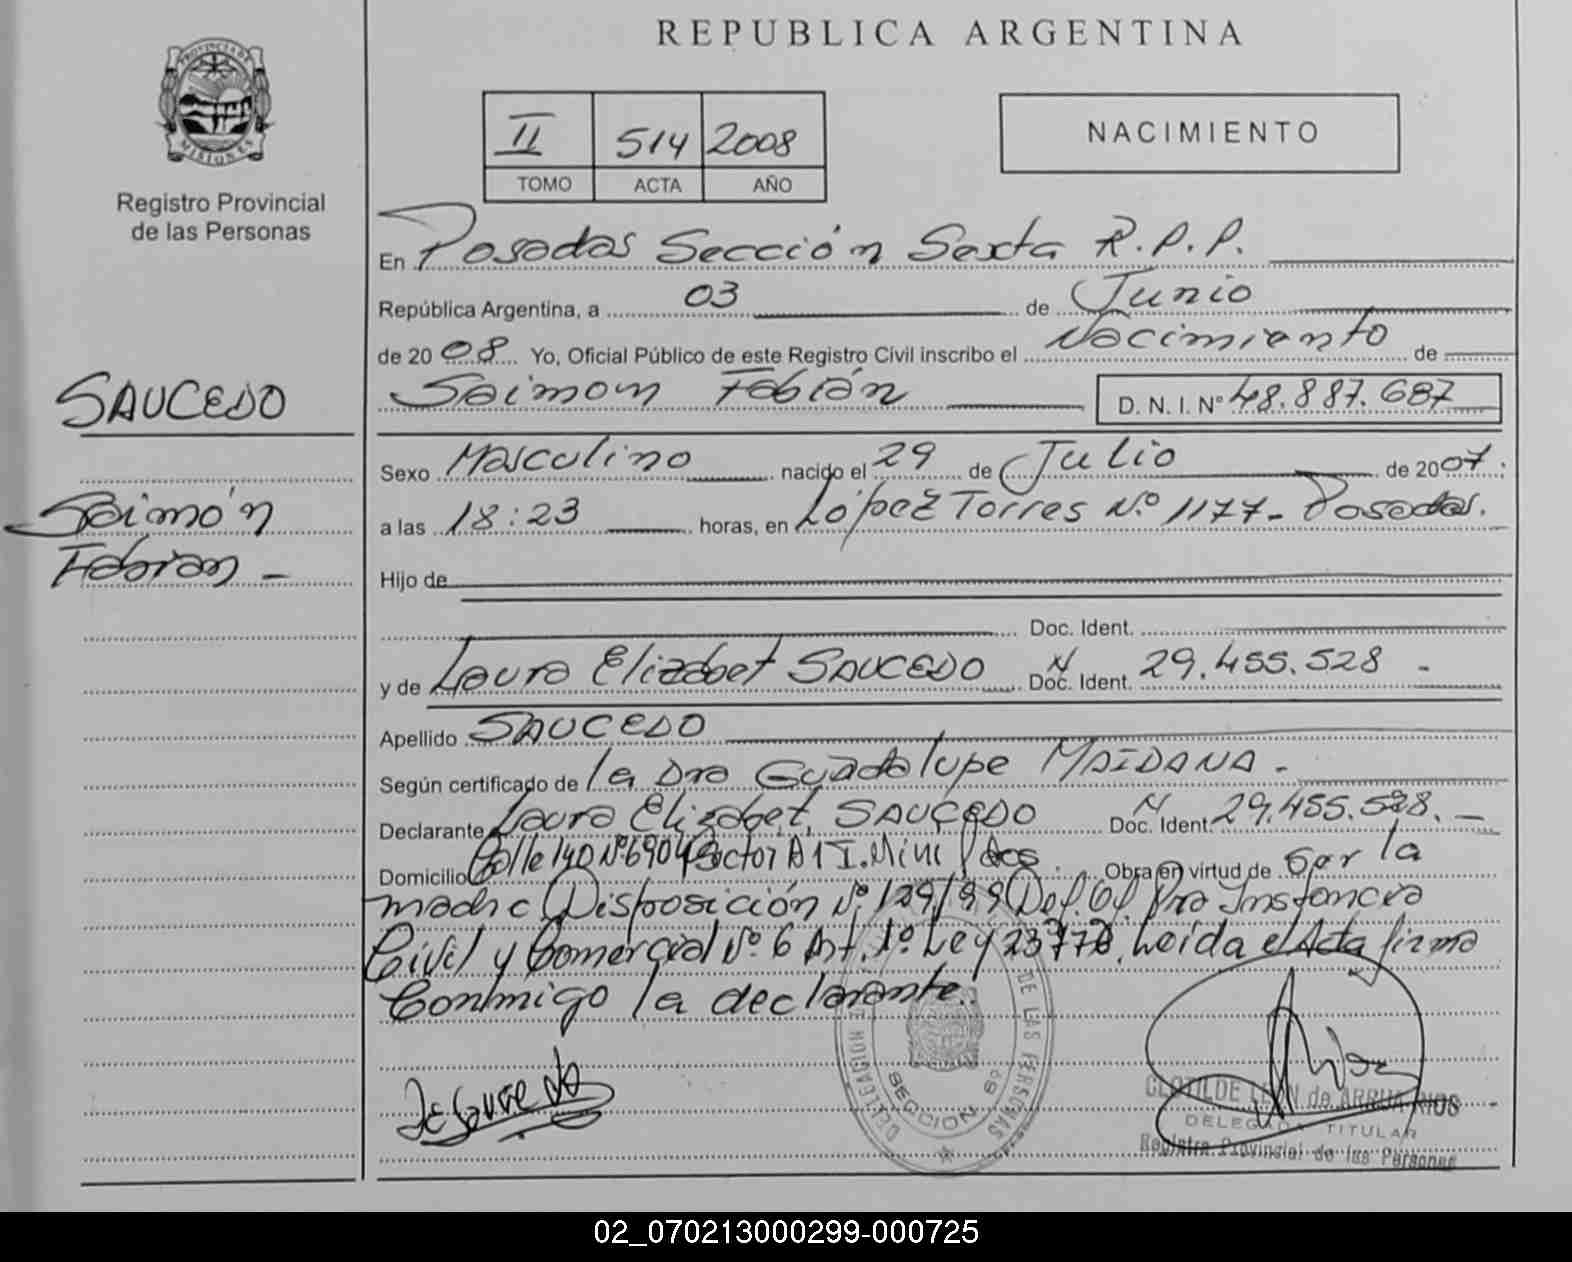 REPUBLICA ARGENTINA
PROVINCIA DE
MISIONES
Registro Provincial
de las Personas
II 514 2008
TOMO ACTA AÑO
NACIMIENTO
En Posadas Sección Sexta R.P.P.
República Argentina, a 03 de Junio
de 2008 Yo, Oficial Público de este Registro Civil inscribo el Nacimiento de
Saimon Fabián D. N. I. Nº 48.887.687
SAUCEDO
Saimón
Fabian -
Sexo Masculino nacido el 29 de Julio de 2007;
a las 18:23 horas, en López Torres Nº 1177- Posadas.
Hijo de
Doc. Ident.
y de Laura Elizabet SAUCEDO Doc. Ident. N 29.455.528 -
Apellido SAUCEDO
Según certificado de la Dra Guadalupe MAIDANA -
Declarante Laura Elizabet, SAUCEDO Doc. Ident. N 29.455.528. -
Domicilio Calle 140 Nº 6904 Sector A1 I. Mini Pdas. Obra en virtud de Ser la
madre Disposición Nº 129/99 Def. Of. Pra Instancia
Civil y Comercial Nº 6 Art. 1º Ley 23778. Leida el Acta firma
Conmigo la declarante.
DELEGACION DE LAS PERSONAS
SECCION 6º
CLOTILDE LEON de ARRUA RIOS
DELEGADA TITULAR
Registro Provincial de las Personas
02_070213000299-000725